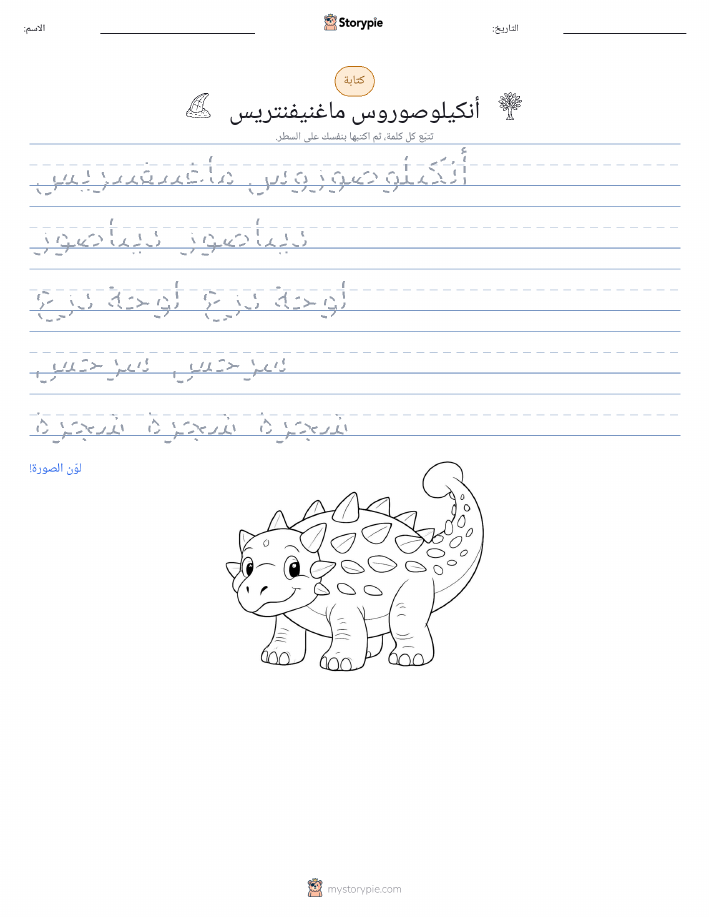 Storypie
الاسم:
التاريخ:
كتابة
أنكيلوصوروس ماغنيفنتريس
تتبّع كل كلمة، ثم اكتبها بنفسك على السطر.
أنكيلوصوروس ماغنيفنتريس
ديناصور ديناصور
لوحة درع لوحة درع
سرخس سرخس
شجرة شجرة شجرة
لوّن الصورة!
mystorypie.com